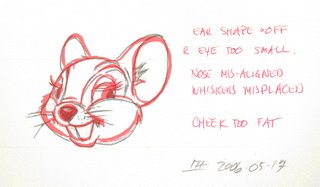 EAR SHAPE OFF
R EYE TOO SMALL.
NOSE MIS-ALIGNED
WHISKERS MISPLACED
CHEEK TOO FAT
2006.05.17